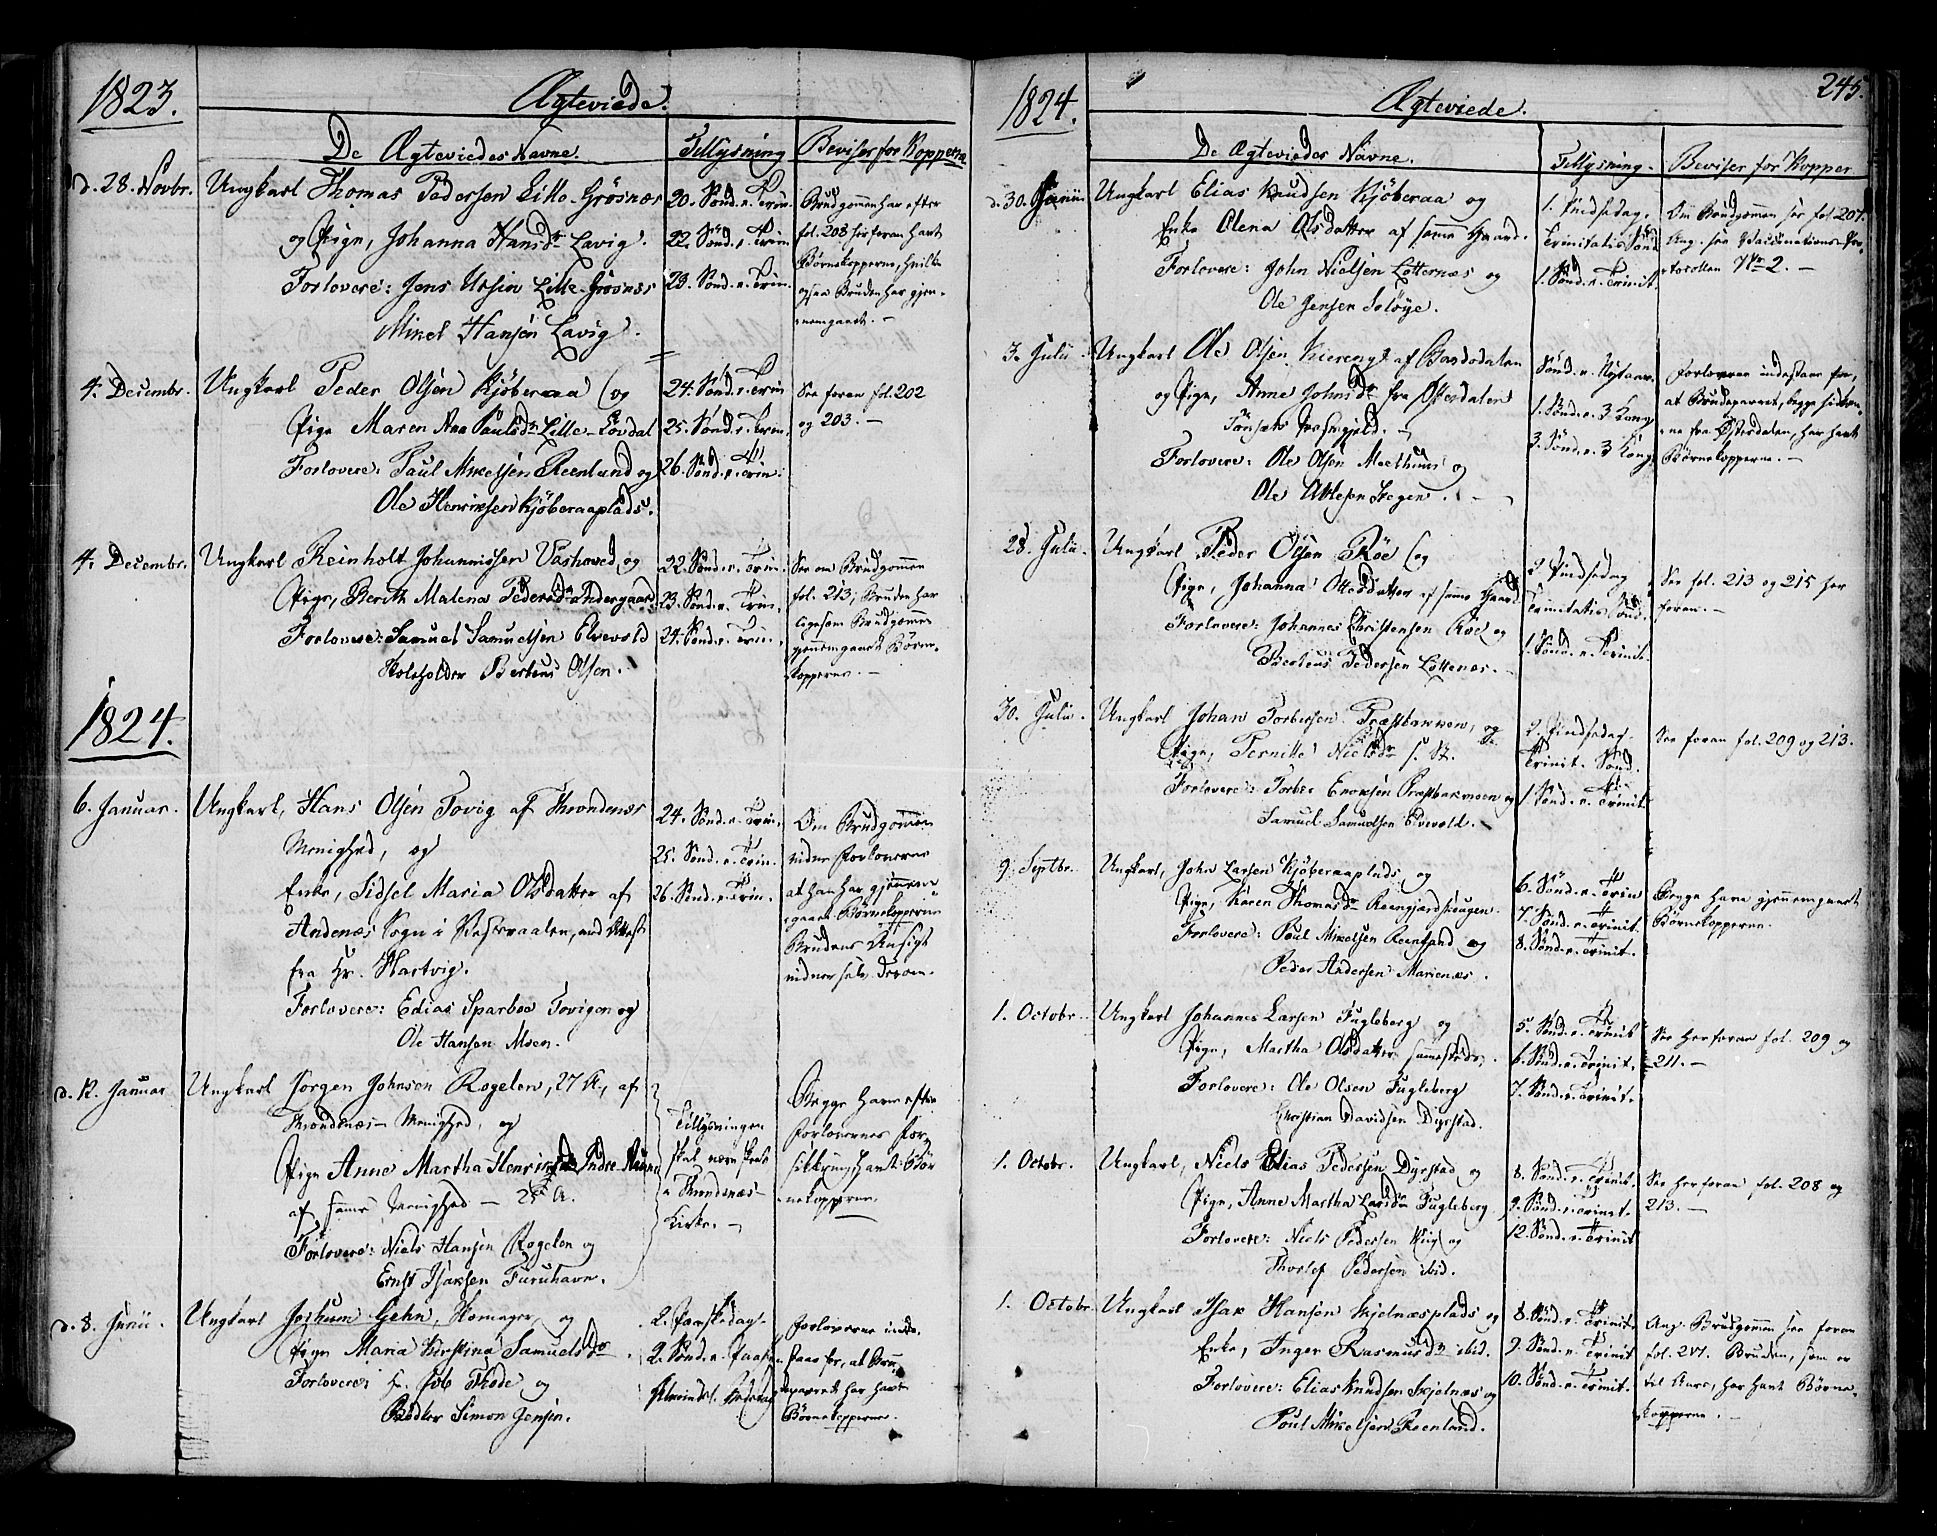 1823.
Ægteviede.
De Ægteviedes Navne.
Tillysning
Beviser for Kopperne
d. 28. Novbr.
Ungkarl Thomas Pedersen Lille-Grøsnæs
og Pige, Johanna Hansdr Lavig.
Forlovere: Jens Ursin Lille-Grøsnæs
Mikel Hansen Lavig.
20. Sønd. e. Trin.
22. Sønd. e. Trin.
23. Sønd. e. Trin.
Brudgommen har efter
fol. 208 herforan havt
Børnekopperne, hvilke
ogsaa Bruden har gjen-
nemgaaet. -
4. Decembr.
Ungkarl Peder Olsen Kjøberaa og
Pige Maren Ana Paulsdr Lille-Lovdal
Forlovere: Paul Mikelsen Reenland og
Ole Henriksen Kjøberaaplads.
24. Sønd. e. Trin
25. Sønd. e. Trin.
26. Sønd. e. Trin.
See foran fol. 202
og 203. -
4. Decembr.
Ungkarl Reinholt Johannissen Vashoved og
Pige, Berith Malena Pedersdr Andergaard
Forlovere: Samuel Samuelsen Elvevold
Skoleholder Berteus Olsen.
22. Sønd. e. Trin.
23. Sønd. e. Trin.
24. Sønd. e. Trin.
See om Brudgommen
fol. 213; Bruden har
ligesom Brudgommen
gjennemgaaet Børne-
kopperne. -
1824.
6. Januar.
Ungkarl, Hans Olsen Tovig af Throndenæs
Menighed, og
Enke, Sidsel Maria Olsdatter af
Andenæs Sogn i Vesteraalen, med Attest
fra Hr. Hartvig.
Forlovere: Edias Sparboe Tovigen og
Ole Hansen Moen.
24. Sønd. e. Trin.
25. Sønd. e. Trin.
26. Sønd. e. Trin.
Om Brudgommen
vidner Forloverne
at han har gjennem-
gaaet Børnekopperne
Brudens Ansigt
vidner selv derom.
d. 12. Januar
Ungkarl Jørgen Johnsen Rogelen, 27 A., af
Throndenæs Menighed, og
Pige Anne Martha Henriksdr Indre
af samme Menighed - 25 A.
Forlovere: Niels Hansen Rogelen og
Ernst Isaksen Furuhavn.
Tillysningen
skal være skeet
i Throndenæs-
Kirke. -
Begge have efter
Forlovernes For-
sikkring havt Bør-
nekopperne
d. 8. Junii.
Ungkarl Jochum Gehn, Skomager, og
Pige Maria Kirstina Samuelsdr.
Forlovere: Hr. Job Thode og
Bødker Simon Jensen.
2. Paaskedag.
2. Sønd. e. Paaske
Forloverne inde-
staae for, at Bru-
deparret har havt
Børnekopperne.
1824.
Ægteviede.
245.
De Ægteviedes Navne.
Tillysning.
Beviser for Kopper
d. 30. Junii
Ungkarl Elias Knudsen Kjøberaa og
Enke Olena Olsdatter af samme Gaard.
Forlovere: John Nielsen Lotternæs og
Ole Jensen Soløye.
1. Pindsedag.
Trinitatis Sønd.
1. Sønd. e. Trinit.
Om Brudgommen see fol. 207.
Ang. see Vaccinations-Pro-
tocollen No 2. -
3. Julii
Ungkarl Ole Olsen Kierengt af Bardodalen
og Pige, Anne Johnsdr fra Østerdalen
Tønsæts Præstegjeld. -
Forlovere: Ole Olsen Moethuus og
Ole Attlesen Stegen.
Sønd. e. Nytaar.
1. Sønd. e. 3 Kong.
3. Sønd. e. 3 Kong.
Forloverne indestaae for,
at Brudeparret, begge hidkom-
ne fra Østerdalen, har havt
Børnekopperne. -
28. Julii.
Ungkarl Peder Olsen Røe og
Pige, Johanna Olesdatter af samme Gaard
Forlovere: Johannes Christensen Røe og
Berteus Pedersen Lottenæs. -
2. Pindsedag
Trinitatis Sønd.
1. Sønd. e. Trinit.
See fol. 213 og 215 her
foran. -
30. Julii.
Ungkarl Johan Torbersen Præstbakken, og
Pige, Pernille Nielsdr s. St.
Forlovere: Torber Enoksen Præstbakmoen og
Samuel Samuelsen Elvevold.
2. Pindsedag.
Trinit. Sønd.
1. Sønd. e. Trinit.
See foran fol. 209 og 213.
9. Septbr.
Ungkarl, John Larsen Kjøberaaplads, og
Pige, Karen Thomasdr Reengjerdhougen.
Forlovere: Poul Mikelsen Reenland og
Peder Andersen Marienæs.
6. Sønd. e. Trin
7. Sønd. e. Trinit.
8. Sønd. e. Trinit.
Begge have gjennemgaaet
Børnekopperne.
1. Octobr.
Ungkarl Johannes Larsen Fugleberg og
Pige, Martha Olsdatter sammesteds.
Forlovere: Ole Olsen Fugleberg
Christian Davidsen Dyrstad.
5. Sønd. e. Trinit
6. Sønd. e. Trinit.
7. Sønd. e. Trinit.
See herforan fol. 209 og
211. -
1. Octobr.
Ungkarl, Niels Elias Pedersen Dyrstad og
Pige, Anne Martha Larsdr Fugleberg.
Forlovere: Niels Pedersen Kiig og
Thorlef Pedersen ibid.
8. Sønd. e. Trinit.
9. Sønd. e. Trinit.
12. Sønd. e. Trinit
See herforan fol. 208 og
213. -
1. Octobr.
Ungkarl Isak Hansen Skjelnæsplads og
Enke, Inger Rasmusdr ibid.
Forlovere: Elias Knudsen Skjelnæs og
Poul Mikelsen Reenland.
8. Sønd. e. Trinit.
9. Sønd. e. Trinit
10. Sønd. e. Trinit.
Ang. Brudgommen see foran
fol. 207. Bruden, som er
til Aars, har havt Børne-
kopperne. -